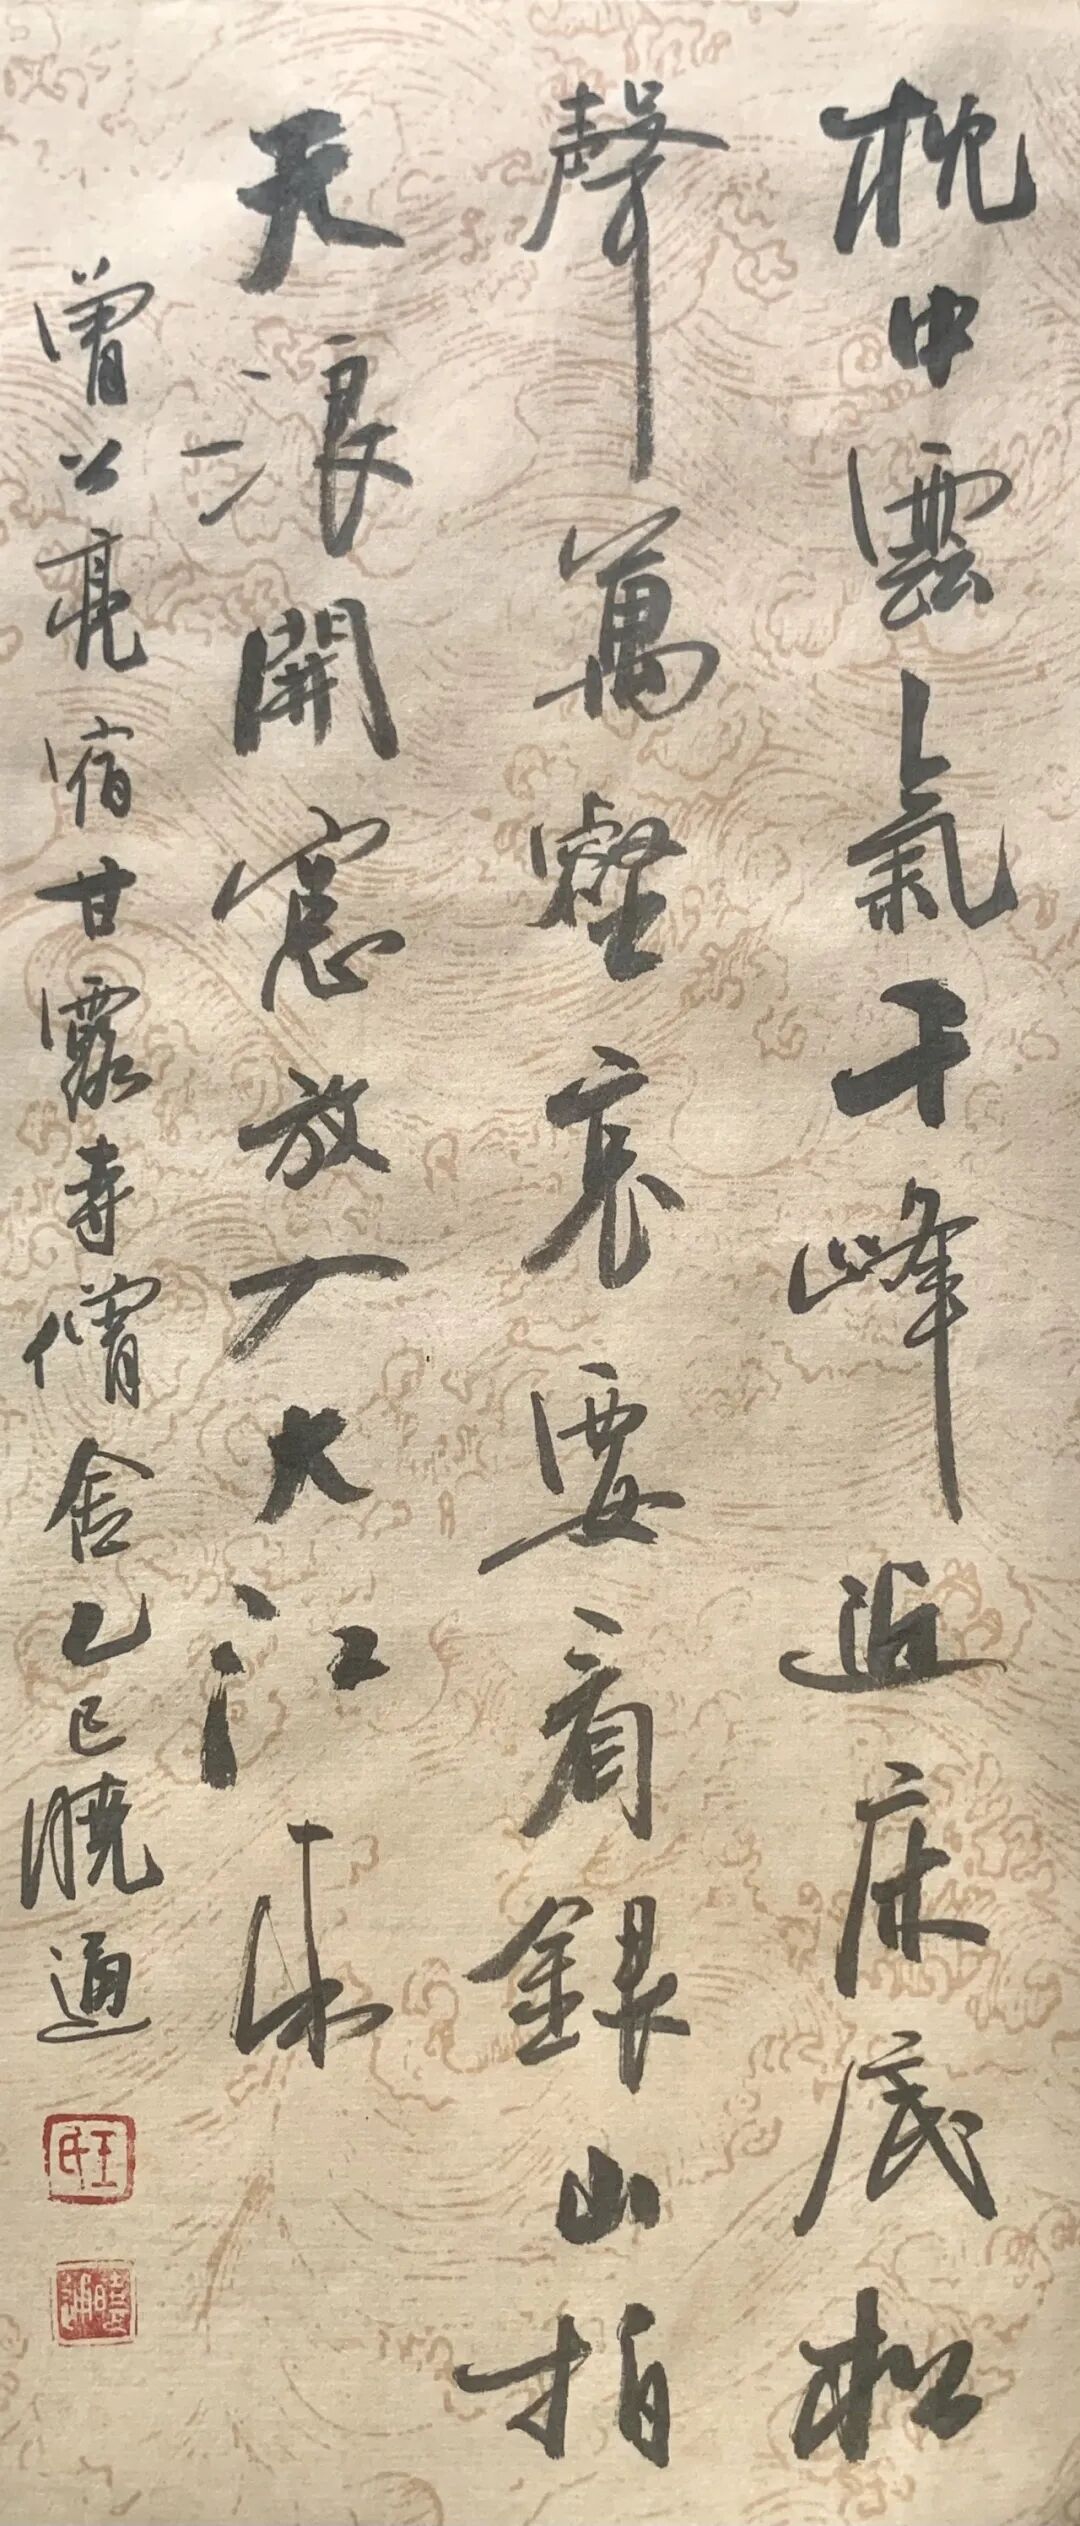 枕中雲氣千峰近床底松
聲萬壑哀要看銀山拍
天浪開窓放入大江來
曾公亮宿甘露寺僧舍乙巳曉通
王氏
曉通